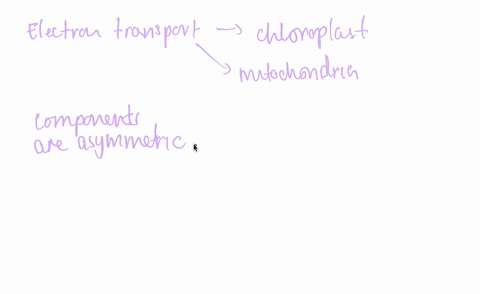 Electron transport → chloroplast
mitochondria
components
are asymmetric